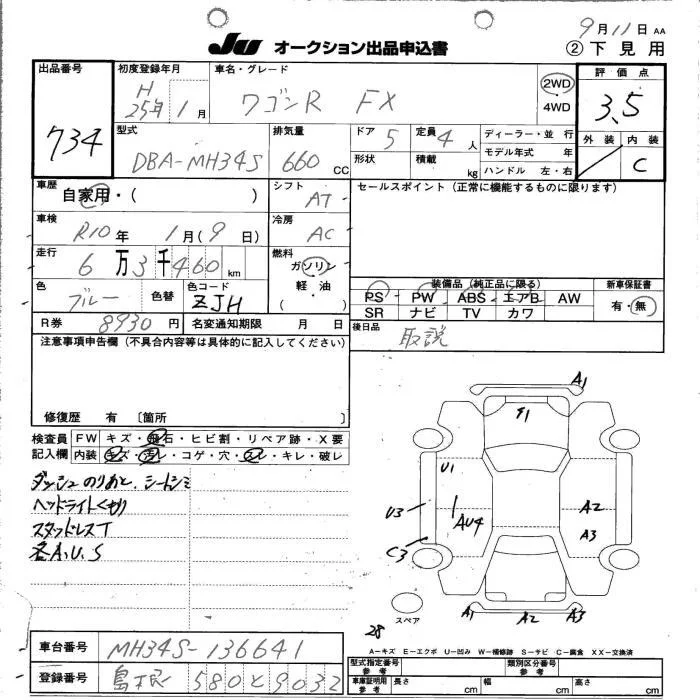 9月11日 AA
JU オークション出品申込書 ②下見用
出品番号 734
初度登録年月 H 25年1月
車名・グレード ワゴンR FX
2WD
・4WD
評価点 3.5
外装 / 内装 C
型式 DBA-MH34S
排気量 660 CC
ドア 5
定員 4人
形状
積載 kg
ディーラー・並行
モデル年式 年
ハンドル 左・右
車歴 自家用・( )
シフト AT
セールスポイント(正常に機能するものに限ります)
車検 R10年 1月(9日)
冷房 AC
走行 6万3千460 km
燃料 ガソリン
軽油
( )
色 ブルー 色替
色コード ZJH
装備品(純正品に限る)
PS PW ABS エアB AW
SR ナビ TV カワ
新車保証書
有・無
R券 8930円
名変通知期限 月 日
後日品 取説
注意事項申告欄(不具合内容等は具体的に記入してください)
修復歴 有 〔箇所 〕
検査員記入欄
FW キズ・飛石・ヒビ割・リペア跡・X要
内装 キズ・汚レ・コゲ・穴・スレ・キレ・破レ
ダッシュのりあと、シートシミ
ヘッドライトくもり
スタッドレスT
各A、U、S
A1
F1
U1
U3
AU4
A2
A3
C3
スペア
A1 A2 A3
28
A-キズ E-エクボ U-凹み W-補修跡 S-サビ C-腐食 XX-交換済
車台番号 MH34S-136641
登録番号 島根 580と9032
型式指定番号 参考
類別区分番号 参考
車庫証明用 参考
長さ cm 幅 cm 高さ cm